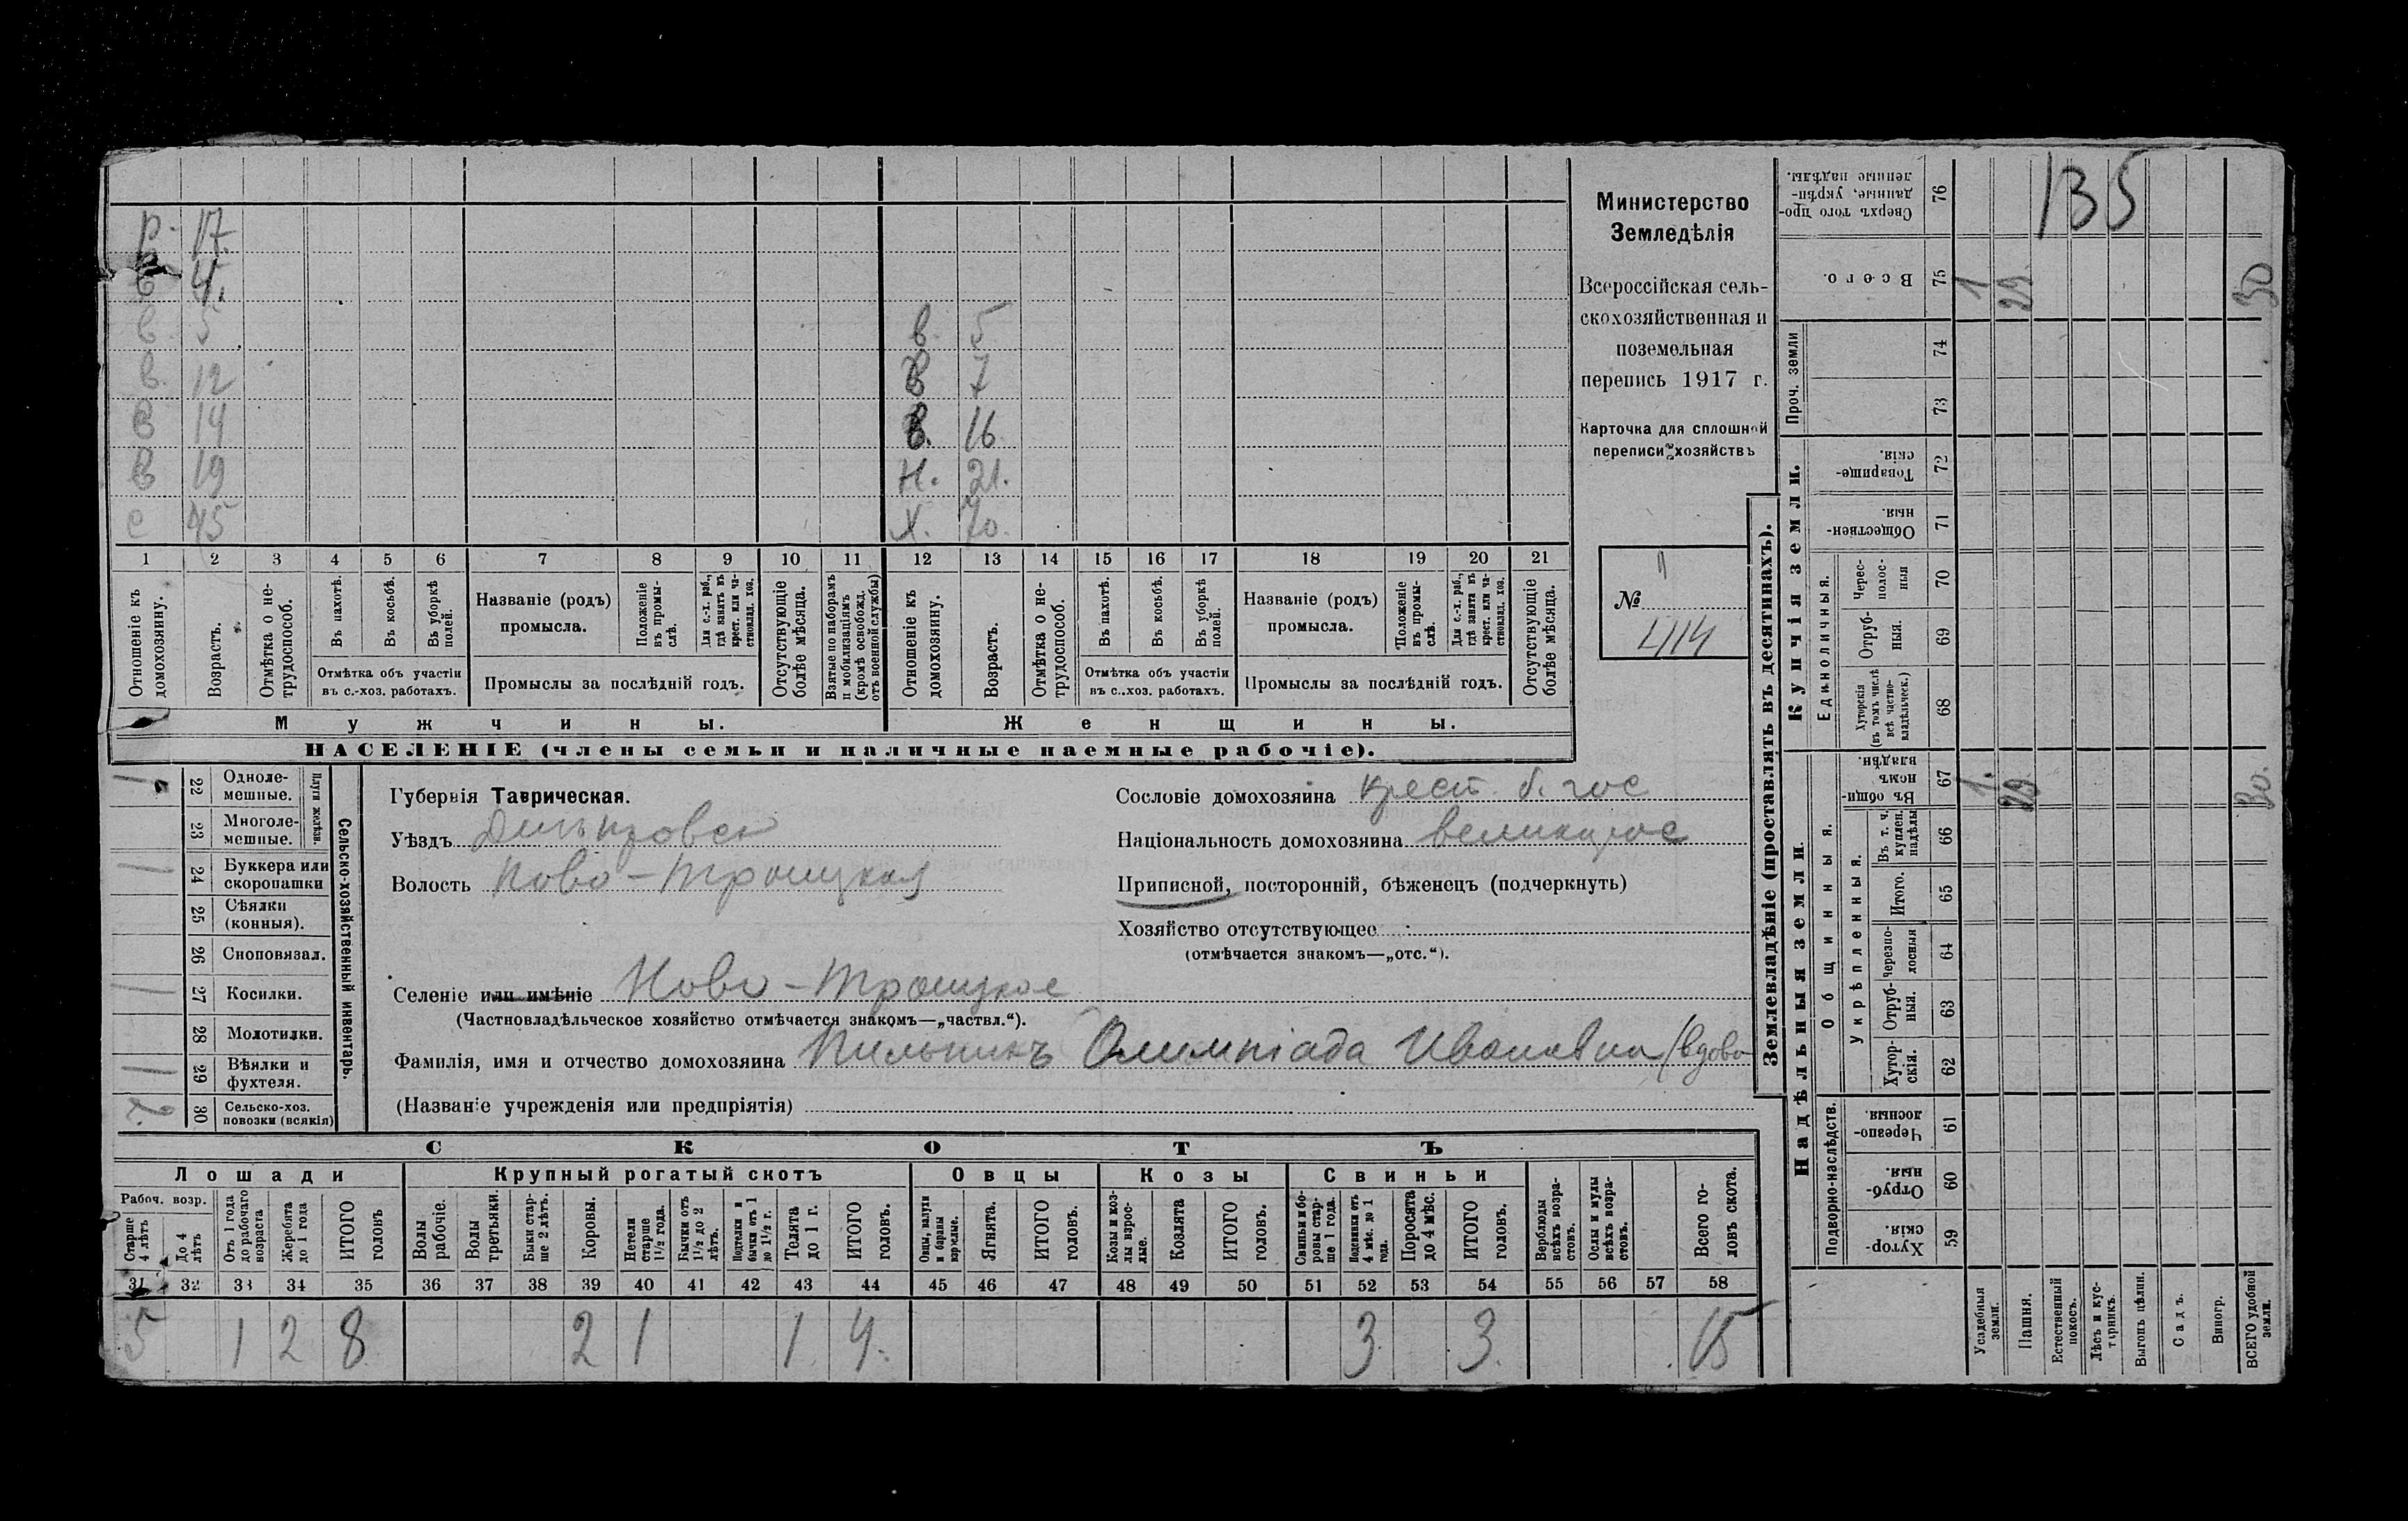 р. 17.
в 4.
в. 5 в. 5
в. 12 в 7
в 14 в. 16
в 19 н. 21.
с 45 х. 70.
1 2 3 4 5 6 7 8 9 10 11 12 13 14 15 16 17 18 19 20 21
Отношеніе къ домохозяину.
Возрастъ.
Отмѣтка о не-трудоспособ.
Въ пахотѣ.
Въ косьбѣ.
Въ уборкѣ полей.
Отмѣтка объ участіи
въ с.-хоз. работахъ.
Названіе (родъ)
промысла.
Положеніе въ промы-слѣ.
Для с.-х. раб., гдѣ занятъ въ крест. или ча-стновлад. хоз.
Промыслы за послѣдній годъ.
Отсутствующіе болѣе мѣсяца.
Взятые по наборамъ и мобилизаціямъ (кромѣ освобожд. отъ военной службы)
Отношеніе къ домохозяину.
Возрастъ.
Отмѣтка о не-трудоспособ.
Въ пахотѣ.
Въ косьбѣ.
Въ уборкѣ полей.
Отмѣтка объ участіи
въ с.-хоз. работахъ.
Названіе (родъ)
промысла.
Положеніе въ промы-слѣ.
Для с.-х. раб., гдѣ занята въ крест. или ча-стновлад. хоз.
Промыслы за послѣдній годъ.
Отсутствующіе болѣе мѣсяца.
Мужчины. Женщины.
НАСЕЛЕНІЕ (члены семьи и наличные наемные рабочіе).
Министерство
Земледѣлія
Всероссійская сель-
скохозяйственная и
поземельная
перепись 1917 г.
Карточка для сплошной
переписи хозяйствъ
№
414
Сельско-хозяйственный инвентарь.
Плуги желѣзн.
1 22 Одноле-мешные.
23 Многоле-мешные.
1 24 Буккера или скоропашки
25 Сѣялки (конныя).
26 Сноповязал.
1 27 Косилки.
28 Молотилки.
1 29 Вѣялки и фухтеля.
2 30 Сельско-хоз. повозки (всякія)
Губернія Таврическая.
Уѣздъ Днѣпровск
Волость Ново-Троицкая
Сословіе домохозяина крест. б. гос
Національность домохозяина великорос
Приписной, посторонній, бѣженецъ (подчеркнуть)
Хозяйство отсутствующее
(отмѣчается знакомъ—„отс.“).
Селеніе или имѣніе Ново-Троицкое
(Частновладѣльческое хозяйство отмѣчается знакомъ—„частвл.“).
Фамилія, имя и отчество домохозяина Пильникъ Олимпіада Ивановна (вдова
(Названіе учрежденія или предпріятія)
СКОТЪ
Лошади Крупный рогатый скотъ Овцы Козы Свиньи
Рабоч. возр.
Старше 4 лѣтъ
До 4 лѣтъ
Отъ 1 года до рабочаго возраста
Жеребята до 1 года
ИТОГО головъ
Волы рабочіе.
Волы третьяки.
Быки стар-ше 2 лѣтъ.
Коровы.
Нетели старше 1½ года.
Бычки отъ 1½ до 2 лѣтъ.
Подтелки и бычки отъ 1 до 1½ г.
Телята до 1 г.
ИТОГО головъ.
Овцы, валухи и бараны взрослые.
Ягнята.
ИТОГО головъ.
Козы и коз-лы взрос-лые.
Козлята
ИТОГО головъ.
Свиньи и бо-ровы стар-ше 1 года.
Подсвинки отъ 4 мѣс. до 1 года.
Поросята до 4 мѣс.
ИТОГО головъ.
Верблюды всѣхъ возра-стовъ.
Ослы и мулы всѣхъ возра-стовъ.
Всего го-ловъ скота.
31 32 33 34 35 36 37 38 39 40 41 42 43 44 45 46 47 48 49 50 51 52 53 54 55 56 57 58
5 1 2 8 2 1 1 4. 3 3. 15
Землевладѣніе (проставлять въ десятинахъ).
135
Сверхъ того про-данные, укрѣп-ленные надѣлы. 76
Всего. 75 1 29 30
Проч. земли 74
73
Купчія земли.
Товарище-скія. 72
Обществен-ныя. 71
Единоличныя.
Черес-полос-ныя 70
Отруб-ныя. 69
Хуторскія (въ томъ числѣ всѣ частно-владѣльческ.) 68
Надѣльныя земли
Общинныя.
Въ общи-номъ владѣн. 67 1. 29 30.
Укрѣпленныя.
Въ т. ч. куплен. надѣлы 66
Итого. 65
Черезпо-лосныя 64
Отруб-ныя. 63
Хутор-скія. 62
Подворно-наслѣдств.
Черезпо-лосныя 61
Отруб-ныя. 60
Хутор-скія. 59
Усадебныя земли.
Пашня.
Естественный покосъ.
Лѣсъ и кус-тарникъ.
Выгонъ цѣлин.
Садъ.
Виногр.
ВСЕГО удобной земли.